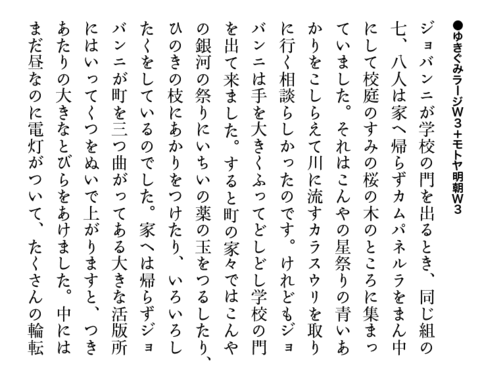 ●ゆきぐみラージW3+モトヤ明朝W3
ジョバンニが学校の門を出るとき、同じ組の
七、八人は家へ帰らずカムパネルラをまん中
にして校庭のすみの桜の木のところに集まっ
ていました。それはこんやの星祭りの青いあ
かりをこしらえて川に流すカラスウリを取り
に行く相談らしかったのです。けれどもジョ
バンニは手を大きくふってどしどし学校の門
を出て来ました。すると町の家々ではこんや
の銀河の祭りにいちいの葉の玉をつるしたり、
ひのきの枝にあかりをつけたり、いろいろし
たくをしているのでした。家へは帰らずジョ
バンニが町を三つ曲がってある大きな活版所
にはいってくつをぬいで上がりますと、つき
あたりの大きなとびらをあけました。中には
まだ昼なのに電灯がついて、たくさんの輪転